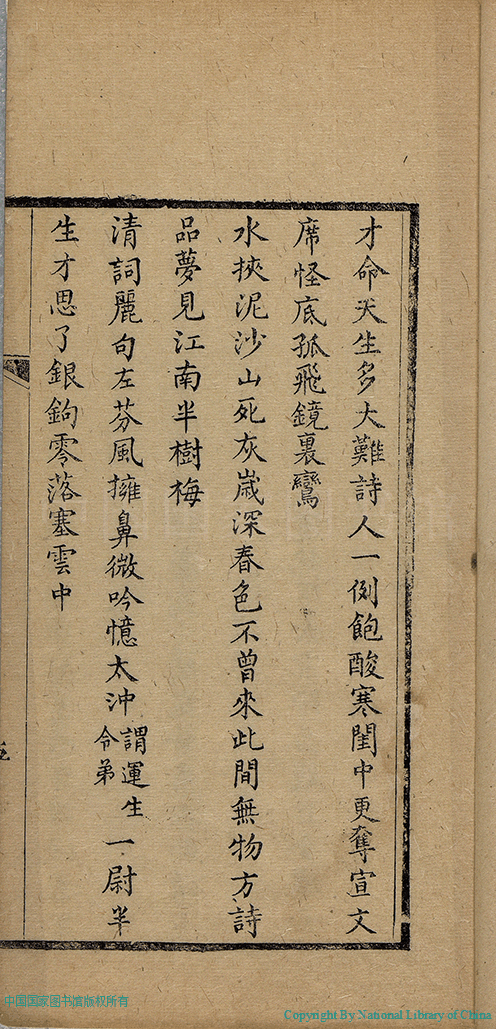 才命天生多大難詩人一例飽酸寒閨中更奪宣文
席怪底孤飛鏡裏鸞
水挾泥沙山死灰歲深春色不曾來此間無物方詩
品夢見江南半樹梅
清詞麗句左芬風擁鼻微吟憶太沖謂運生令弟一尉半
生才思了銀鉤零落塞雲中
五
中国国家图书馆版权所有
Copyright By National Library of China